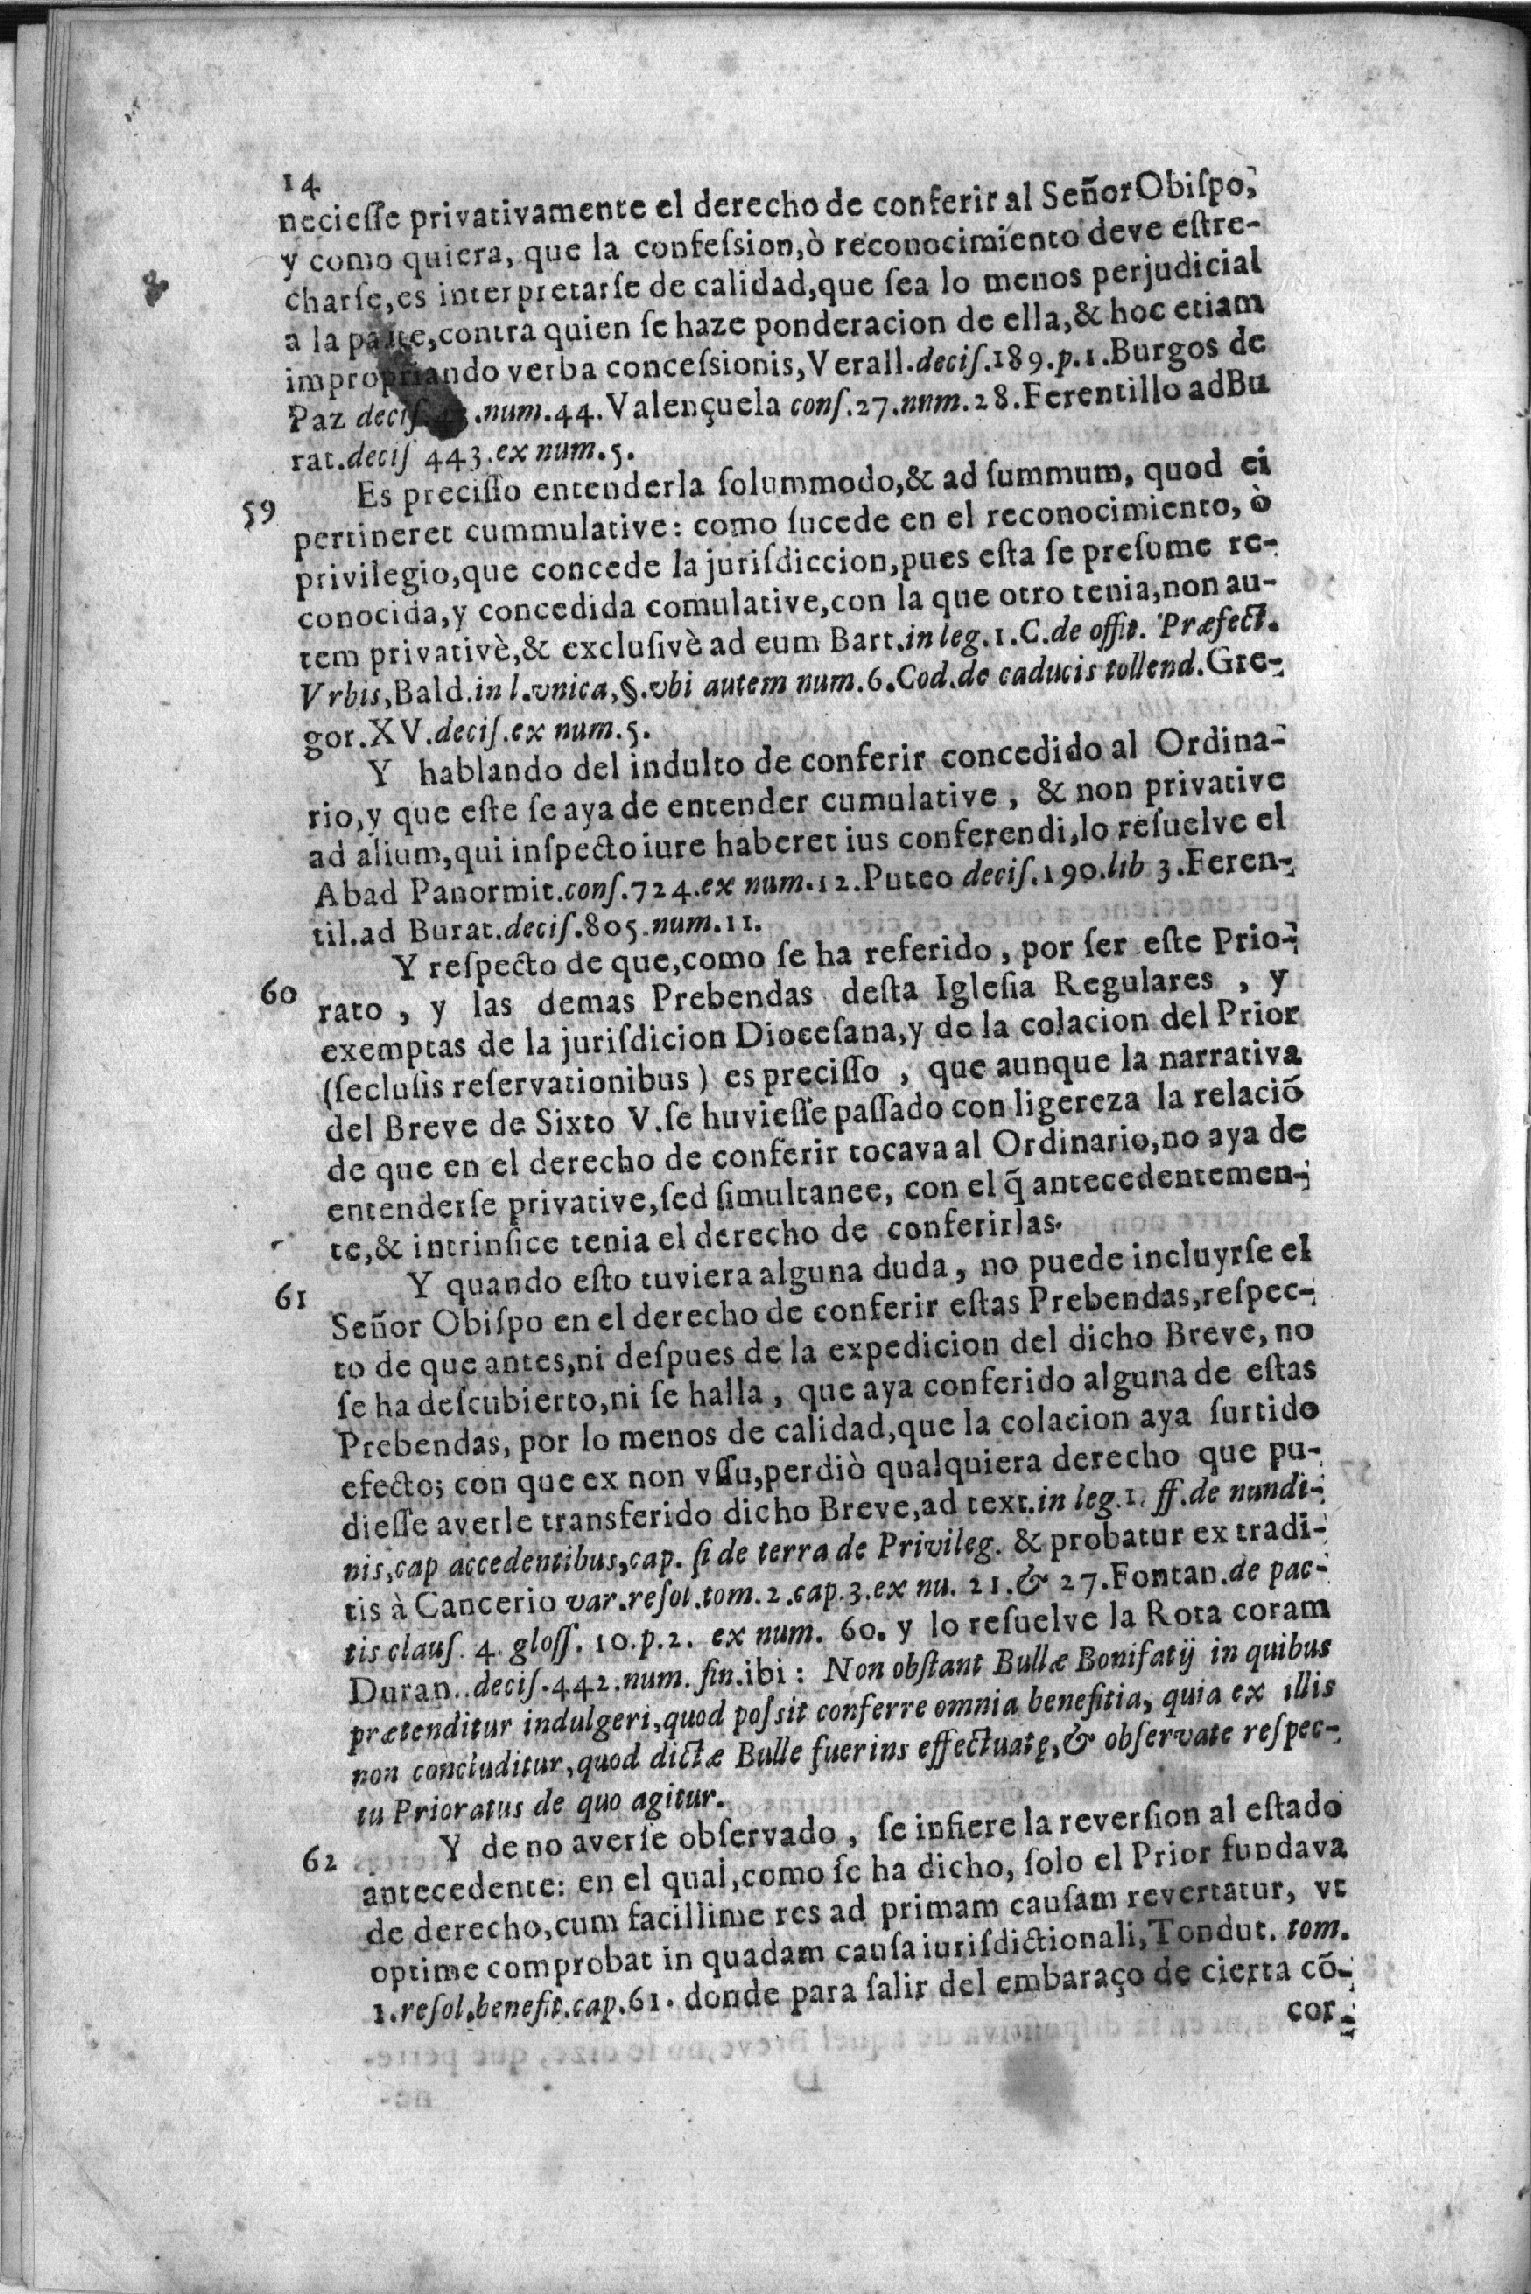 14
neciesse privativamente el derecho de conferir al Señor Obispo,
y como quiera, que la confession, ò reconocimiento deve estre-
charse, es interpretarse de calidad, que sea lo menos perjudicial
a la parte, contra quien se haze ponderacion de ella, & hoc etiam
impropriando verba concessionis, Verall. decis. 189. p. 1. Burgos de
Paz decis. num. 44. Valençuela cons. 27. num. 28. Ferentillo ad Bu
rat. decis 443. ex num. 5.
59 Es precisso entenderla solummodo, & ad summum, quod ei
pertineret cummulative: como sucede en el reconocimiento, ò
privilegio, que concede la jurisdiccion, pues esta se presume re-
conocida, y concedida comulative, con la que otro tenia, non au-
tem privativè, & exclusivè ad eum Bart. in leg. 1. C. de offit. Præfect.
Vrbis, Bald. in l. vnica, §. vbi autem num. 6. Cod. de caducis tollend. Gre-
gor. XV. decis. ex num. 5.
Y hablando del indulto de conferir concedido al Ordina-
rio, y que este se aya de entender cumulative, & non privative
ad alium, qui inspecto iure haberet ius conferendi, lo resuelve el
Abad Panormit. cons. 724. ex num. 12. Puteo decis. 190. lib 3. Feren-
til. ad Burat. decis. 805. num. 11.
60 Y respecto de que, como se ha referido, por ser este Prio-
rato, y las demas Prebendas desta Iglesia Regulares, y
exemptas de la jurisdicion Diocesana, y de la colacion del Prior
(seclusis reservationibus) es precisso, que aunque la narrativa
del Breve de Sixto V. se huviesse passado con ligereza la relaciõ
de que en el derecho de conferir tocava al Ordinario, no aya de
entenderse privative, sed simultanee, con el q̃ antecedentemen-
te, & intrinsice tenia el derecho de conferirlas.
61 Y quando esto tuviera alguna duda, no puede incluyrse el
Señor Obispo en el derecho de conferir estas Prebendas, respec-
to de que antes, ni despues de la expedicion del dicho Breve, no
se ha descubierto, ni se halla, que aya conferido alguna de estas
Prebendas, por lo menos de calidad, que la colacion aya surtido
efecto; con que ex non vssu, perdiò qualquiera derecho que pu-
diesse averle transferido dicho Breve, ad text. in leg. 1. ff. de nundi-
nis, cap accedentibus, cap. si de terra de Privileg. & probatur ex tradi-
tis à Cancerio var. resol. tom. 2. cap. 3. ex nu. 21. & 27. Fontan. de pac-
tis claus. 4. gloss. 10. p. 2. ex num. 60. y lo resuelve la Rota coram
Duran. decis. 442. num. fin. ibi: Non obstant Bullæ Bonifatij in quibus
prætenditur indulgeri, quod possit conferre omnia benefitia, quia ex illis
non concluditur, quod dictæ Bulle fuerins effectuatę, & observate respec-
tu Prioratus de quo agitur.
62 Y de no averse observado, se infiere la reversion al estado
antecedente: en el qual, como se ha dicho, solo el Prior fundava
de derecho, cum facillime res ad primam causam revertatur, vt
optime comprobat in quadam causa iurisdictionali, Tondut. tom.
1. resol. benefit. cap. 61. donde para salir del embaraço de cierta cõ-
cor-